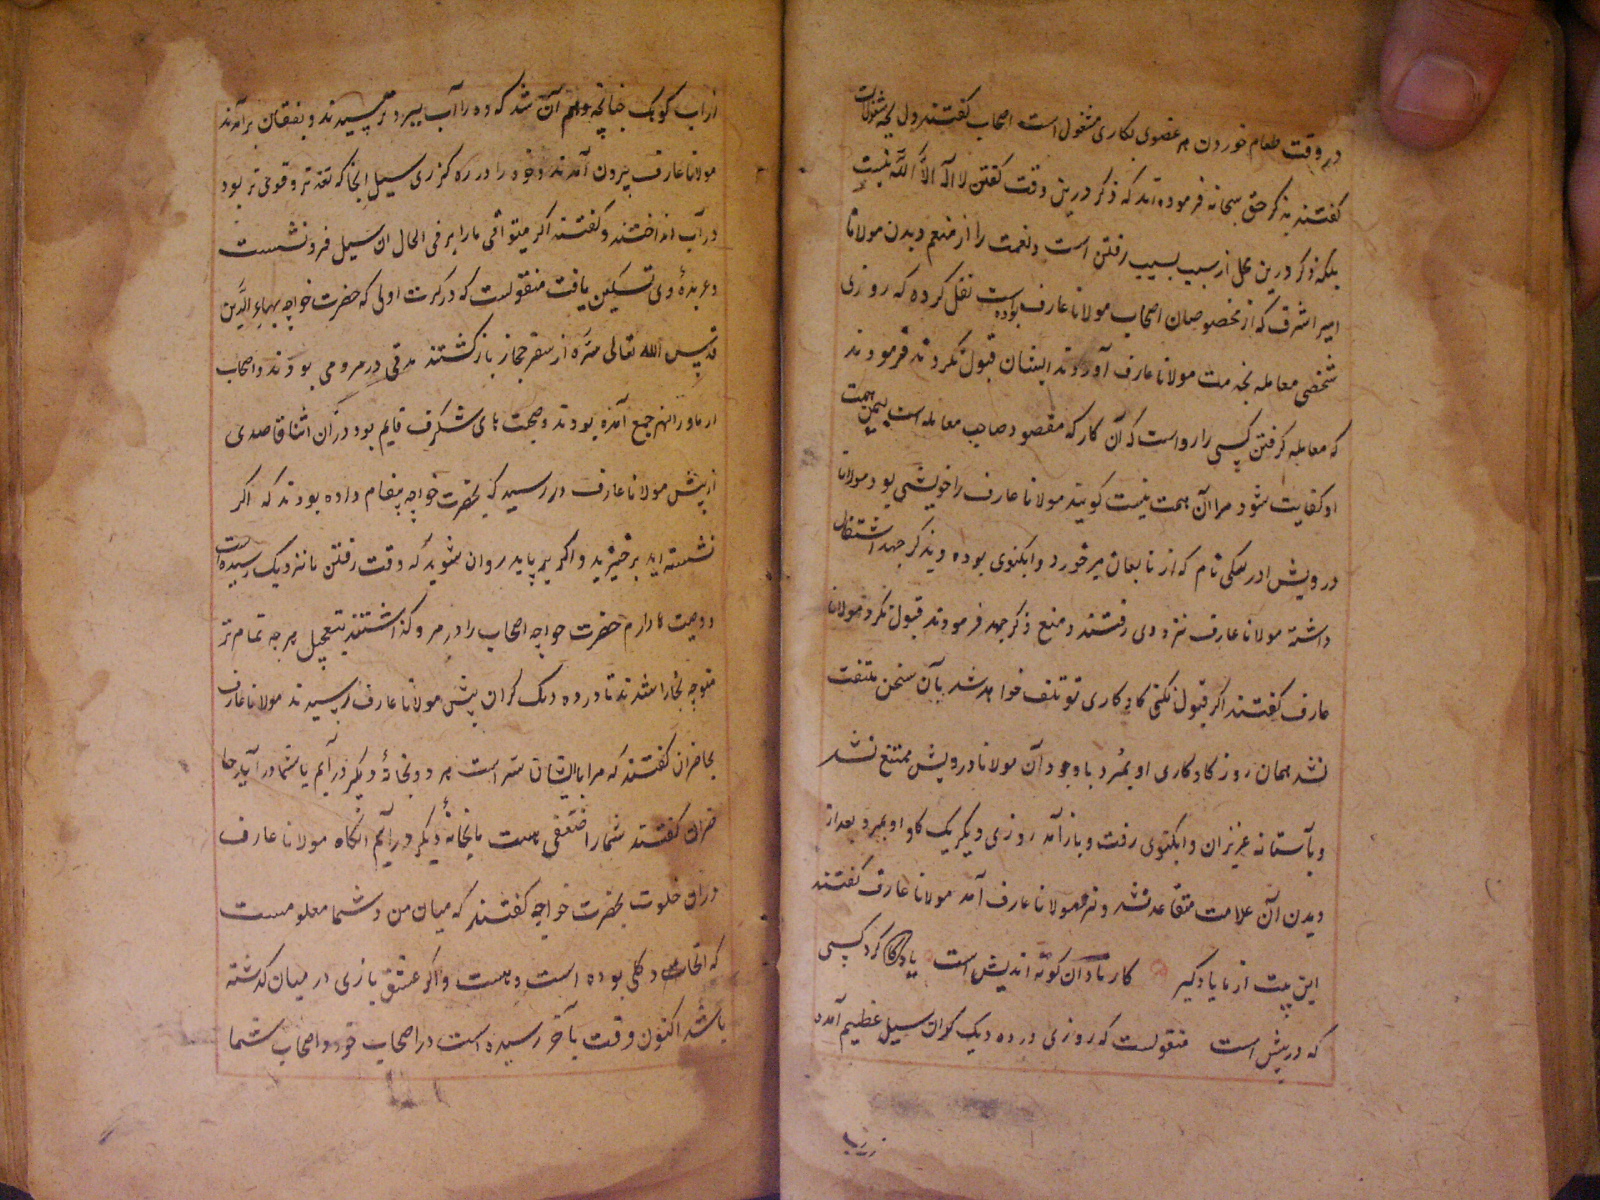 در وقت طعام خوردن هر عضوی بکاری مشغول است اصحاب گفتند دل بچه مشغولست
گفتند بذکر حق سبحانه فرموده اند که ذکر درین وقت گفتن لا اله الا الله نیست
بلکه ذکر درین محل از سبب بسبب رفتن است و نعمت را از منعم دیدن مولانا
امیر اشرف که از مخصوصان اصحاب مولانا عارف بوده است نقل کرده که روزی
شخصی معامله بخدمت مولانا عارف آوردند ایشان قبول نکردند فرمودند
که معامله گرفتن کسی را رواست که آن کار که مقصود صاحب معامله است بیمن همت
او کفایت شود مرا آن همت نیست گویند مولانا عارف را خویشی بود مولانا
درویش ادرسکی نام که از تابعان میر خورد وابکنوی بوده و بذکر جهد اشتغال
داشته مولانا عارف نزد وی رفتند و منع ذکر جهد فرمودند قبول نکرد مولانا
عارف گفتند اگر قبول نکنی گاو کاری تو تلف خواهد شد بآن سخن ملتفت
نشد همان روز گاو کاری او بمرد با وجود آن مولانا درویش ممتنع نشد
و بآستانه عزیزان وابکنوی رفت و باز آمد روزی دیگر یک گاو او بمرد بعد از
دیدن آن علامت متقاعد شد و نزد مولانا عارف آمد مولانا عارف گفتند
این بیت از ما یاد گیر کار نادان کوته اندیش است یاد کرد کسی
که در پیش است منقولست که روزی در ده دیک کران سیل عظیم آمده
از آب کوهک چنانچه وهم آن شد که ده را آب ببرد ترسیدند و بفغان برآمدند
مولانا عارف بیرون آمدند و خود را در ره گذری سیل انجا که تندتر و قوی تر بود
در آب انداختند و گفتند اگر میتوانی ما را ببر فی الحال ان سیل فرونشست
و عربدهٔ وی تسکین یافت منقولست که در کرت اولی که حضرت خواجه بهاء الدین
قدس الله تعالی سره از سفر حجاز بازگشتند مدتی در مرو می بودند و اصحاب
از ماوراالنهر جمع آمده بودند و صحبت های شگرف قایم بود در آن اثنا قاصدی
از پیش مولانا عارف در رسید که بحضرت خواجه پیغام داده بودند که اگر
نشسته اید برخیزید و اگر بر پایید روان شوید که وقت رفتن ما نزدیک رسیده است
و وصیت ها دارم حضرت خواجه اصحاب را در مرو گذاشتند بتعجیل هر چه تمام تر
متوجه بخارا شدند تا در ده دیک کران پیش مولانا عارف رسیدند مولانا عارف
بحاضران گفتند که مرا با ایشان سر است هر دو بخانهٔ دیگر درآیم یا شما درآیید حا
ضران گفتند شما را ضعفی هست ما بخانهٔ دیگر درآیم آنگاه مولانا عارف
در ان خلوت بحضرت خواجه گفتند که میان من و شما معلومست
که اتحاد کلی بوده است و هست و اگر عشق بازی در میان گذشته
باشد اکنون وقت بآخر رسیده است در اصحاب خود و اصحاب شما